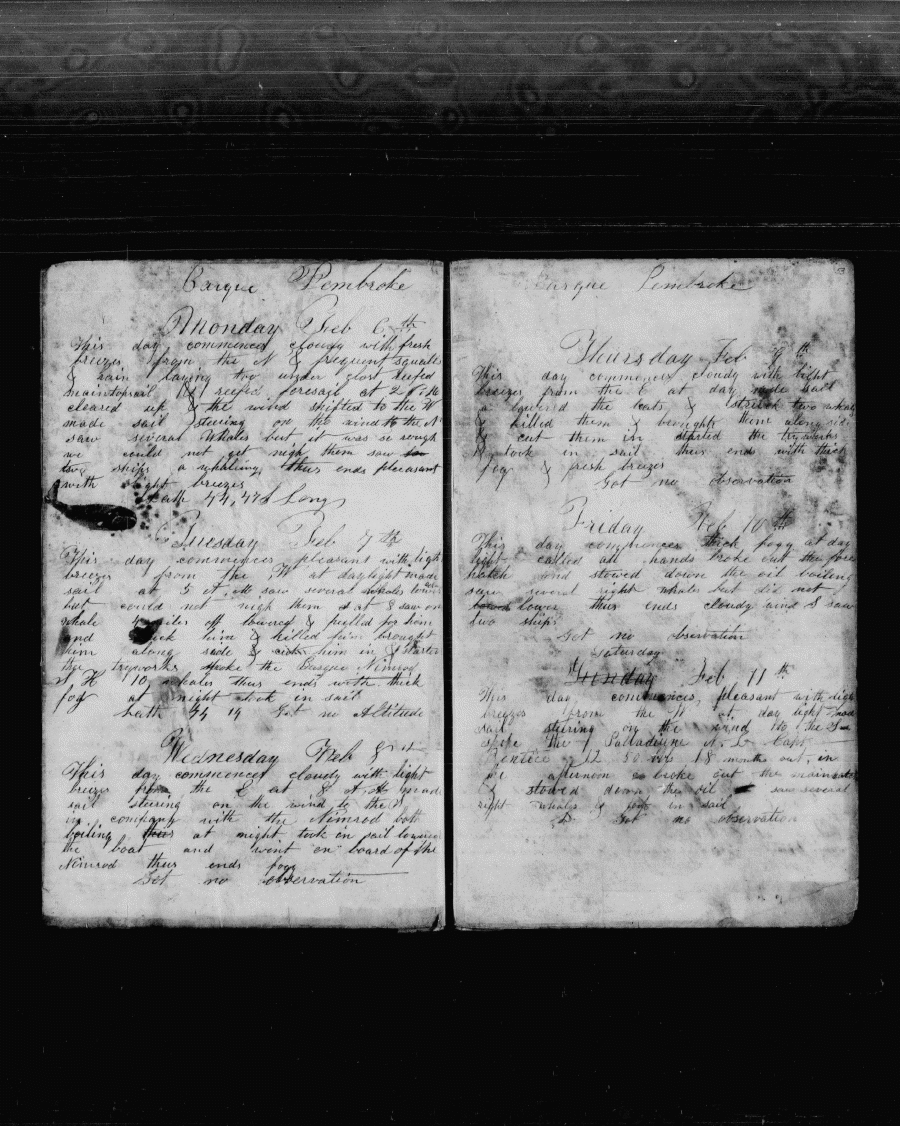 Barque Pembroke
Monday Feb 6th
This day commenced cloudy with fresh
breezes from the N & frequent squalls
& rain laying too under close reefed
maintopsail & reefed foresail at 2 P M
cleared up & the wind shifted to the W
made sail steering on the wind to the N
saw several Whales but it was so rough
we could not get nigh them saw
two ships a whaling thus ends pleasant
with light breezes
Lath 44,47 Long
Tuesday Feb 7th
This day commences pleasant with light
breezes from the W at daylight made
sail at 5 A M saw several whales lowered
but could not nigh them at 8 saw one
whale 4 miles off lowered & pulled for him
and struck him & killed him brought
him along side & cut him in & started
the tryworks spoke the Barque Nimrod
S H 10 whales thus ends with thick
fog at night took in sail
Lath 44 14 Got no Altitude
Wednesday Feb 8th
This day commences cloudy with light
breezes from the E at 8 A M made
sail steering on the wind to the S
in company with the Nimrod both
boiling at night took in sail lowered
the boat and went on board of the
Nimrod thus ends fogy
Got no observation
Barque Pembroke
Thursday Feb 9th
This day commences cloudy with light
breezes from the E at day made sail
lowered the boats & struck two whales
& killed them & brought them along side
& cut them in started the tryworks
took in sail thus ends with thick
fog & fresh breezes
Got no observation
Friday Feb 10th
This day commences thick fogy at day
light called all hands broke out the fore
hatch and stowed down the oil boiling
saw several right whales but did not
lower thus ends cloudy and saw
two ships
Got no observation
Saturday
Sunday Feb 11th
This day commences, pleasant with light
breezes from the W at day light made
sail steering on the wind to the S
spoke the Palladium N. L Capt
12 50 18 months out, in
the afternoon broke out the main
& stowed down the oil saw several
right whales & took in sail
Got no observation